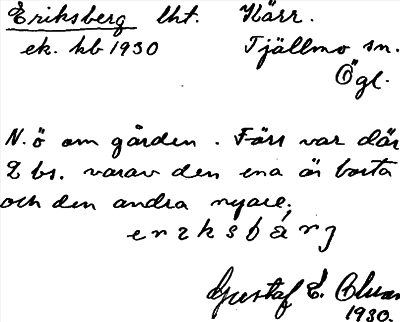 Eriksberg lht. Kärr.
ek. kb 1930 Tjällmo sn.
Ögl.
N.ö om gården. Förr var där
2 bs. varav den ena är borta
och den andra nyare.
erıksbárj
Gustaf E.
1930.